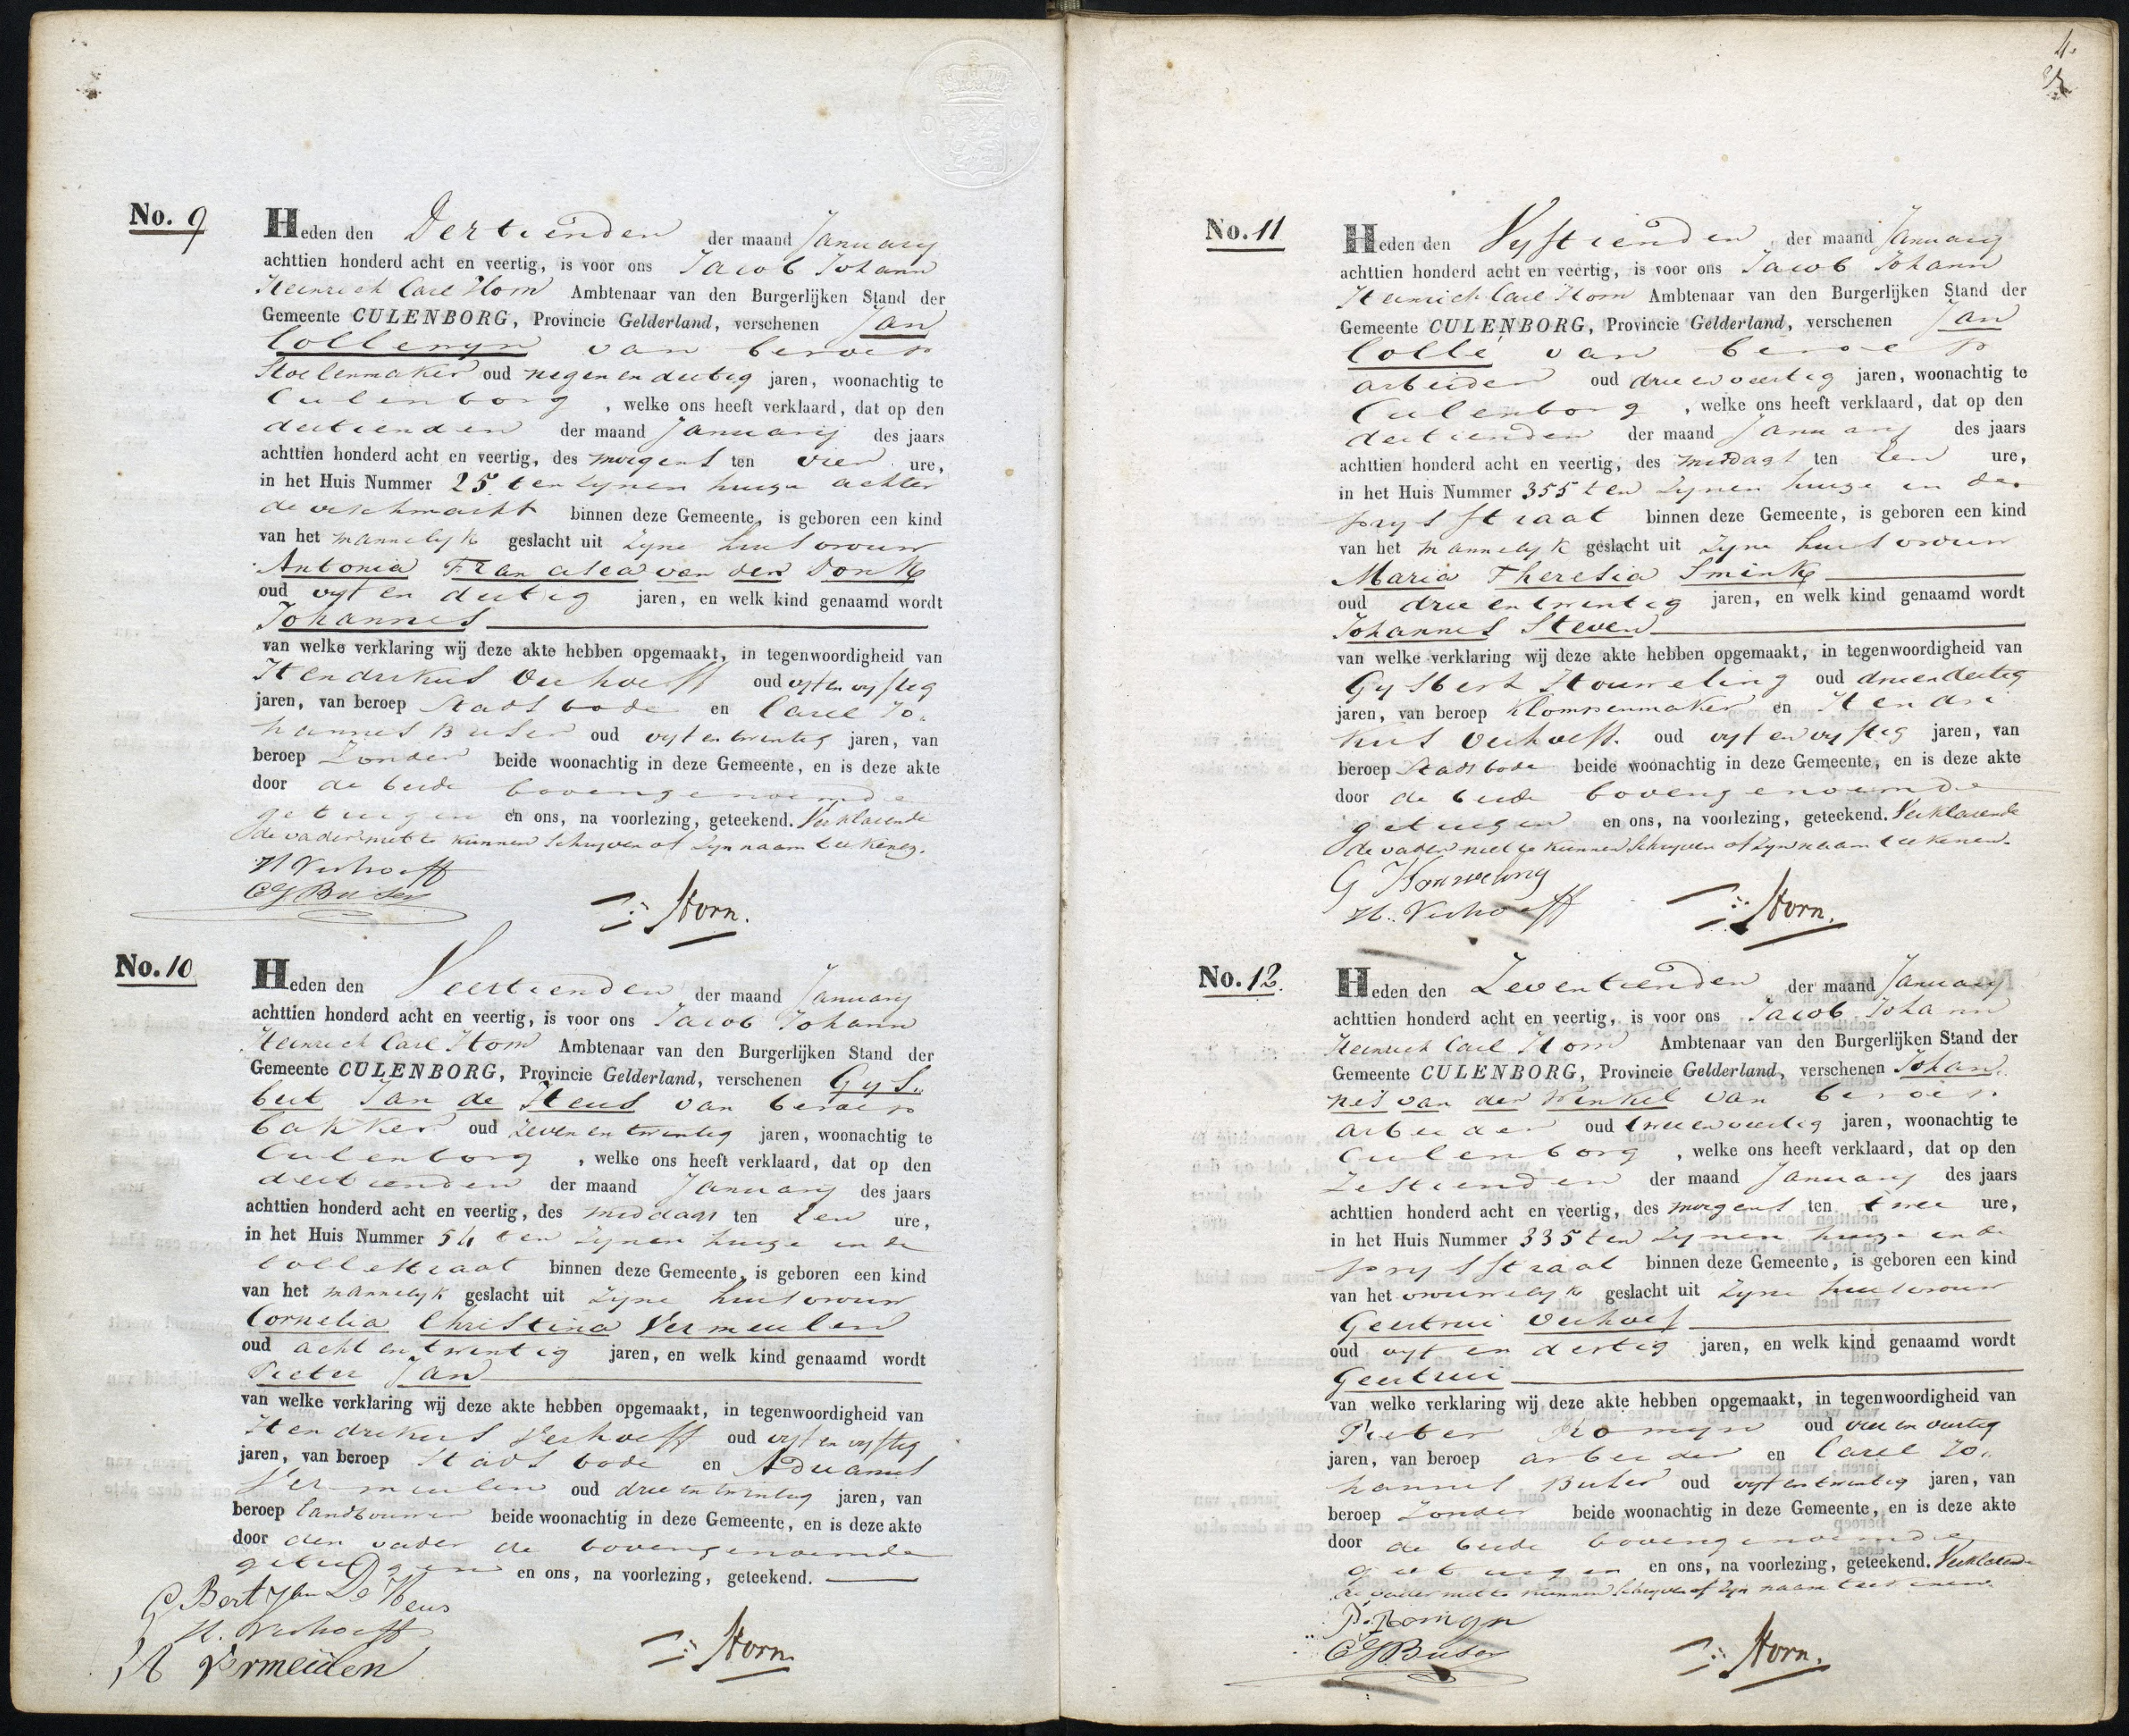 No. 9
Heden den Dertienden der maand January
achttien honderd acht en veertig, is voor ons Jacob Johann
Heinrich Carl Horn Ambtenaar van den Burgerlijken Stand der
Gemeente CULENBORG, Provincie Gelderland, verschenen Jan
Collemyn van beroep
Stoelenmaker oud negen en dertig jaren, woonachtig te
Culenborg, welke ons heeft verklaard, dat op den
dertienden der maand January des jaars
achttien honderd acht en veertig, des morgens ten vier ure,
in het Huis Nummer 25 ten zynen huize achter
de vischmarkt binnen deze Gemeente, is geboren een kind
van het mannelyk geslacht uit zyne huisvrouw
Antonia Francisca van den Donk
oud vyf en dertig jaren, en welk kind genaamd wordt
Johannes
van welke verklaring wij deze akte hebben opgemaakt, in tegenwoordigheid van
Hendrikus Verhoeff oud vyf en vyftig
jaren, van beroep Stadsbode en Carel Jo„
hannes Buser oud vyf en twintig jaren, van
beroep Zonder beide woonachtig in deze Gemeente, en is deze akte
door de beide bovengenoemde
getuigen en ons, na voorlezing, geteekend. Verklarende
de vader niet te kunnen schryven of zyn naam teekenen.
H Verhoeff
CJ Buser
Horn.
No. 10
Heden den Veertienden der maand January
achttien honderd acht en veertig, is voor ons Jacob Johann
Heinrich Carl Horn Ambtenaar van den Burgerlijken Stand der
Gemeente CULENBORG, Provincie Gelderland, verschenen Gys„
bert Jan de Heus van beroep
bakker oud zeven en twintig jaren, woonachtig te
Culenborg, welke ons heeft verklaard, dat op den
dertienden der maand January des jaars
achttien honderd acht en veertig, des middags ten een ure,
in het Huis Nummer 54 ten zynen huize in de
tollestraat binnen deze Gemeente, is geboren een kind
van het mannelyk geslacht uit zyne huisvrouw
Cornelia Christina Vermeulen
oud acht en twintig jaren, en welk kind genaamd wordt
Pieter Jan
van welke verklaring wij deze akte hebben opgemaakt, in tegenwoordigheid van
Hendrikus Verhoeff oud vyf en vyftig
jaren, van beroep Stads bode en Adrianus
Vermeulen oud drie en twintig jaren, van
beroep landbouwer beide woonachtig in deze Gemeente, en is deze akte
door den vader de bovengenoemde
getuigen en ons, na voorlezing, geteekend.
G Bert Jan De Heus
H. Verhoeff
A Vrmeulen
Horn.
4.
No. 11
Heden den Vyftienden der maand January
achttien honderd acht en veertig, is voor ons Jacob Johann
Heinrich Carl Horn Ambtenaar van den Burgerlijken Stand der
Gemeente CULENBORG, Provincie Gelderland, verschenen Jan
Collé van beroep
arbeider oud drie en veertig jaren, woonachtig te
Culenborg, welke ons heeft verklaard, dat op den
dertienden der maand January des jaars
achttien honderd acht en veertig, des middags ten een ure,
in het Huis Nummer 355 ten zynen huize in de
prysstraat binnen deze Gemeente, is geboren een kind
van het mannelyk geslacht uit zyne huisvrouw
Maria Theresia Smink
oud drie en twintig jaren, en welk kind genaamd wordt
Johannes Steven
van welke verklaring wij deze akte hebben opgemaakt, in tegenwoordigheid van
Gysbert Houweling oud drie en dertig
jaren, van beroep Klompenmaker en Hendri
kus Verhoeff. oud vyf en vyftig jaren, van
beroep Stadsbode beide woonachtig in deze Gemeente, en is deze akte
door de beide bovengenoemde
getuigen en ons, na voorlezing, geteekend. Verklarende
de vader niet te kunnen schryven of zyn naam teekenen.
G Houweling
H. Verhoeff
Horn.
No. 12.
Heden den Zeventienden der maand January
achttien honderd acht en veertig, is voor ons Jacob Johann
Heinrich Carl Horn Ambtenaar van den Burgerlijken Stand der
Gemeente CULENBORG, Provincie Gelderland, verschenen Johan„
nes van der Winkel van beroep
arbeider oud twee en veertig jaren, woonachtig te
Culenborg, welke ons heeft verklaard, dat op den
Zestienden der maand January des jaars
achttien honderd acht en veertig, des morgens ten twee ure,
in het Huis Nummer 335 ten zynen huize in de
prysstraat binnen deze Gemeente, is geboren een kind
van het vrouwelyk geslacht uit zyne huisvrouw
Geertrui Verhoef
oud vyf en dertig jaren, en welk kind genaamd wordt
Geertrui
van welke verklaring wij deze akte hebben opgemaakt, in tegenwoordigheid van
Pieter Romyn oud vier en veertig
jaren, van beroep arbeider en Carel Jo„
hannes Buser oud vyf en twintig jaren, van
beroep Zonder beide woonachtig in deze Gemeente, en is deze akte
door de beide bovengenoemde
getuigen en ons, na voorlezing, geteekend. Verklarende
de vader niet te kunnen schryven of zyn naam teekenen.
P. Romyn
CJ Buser
Horn.